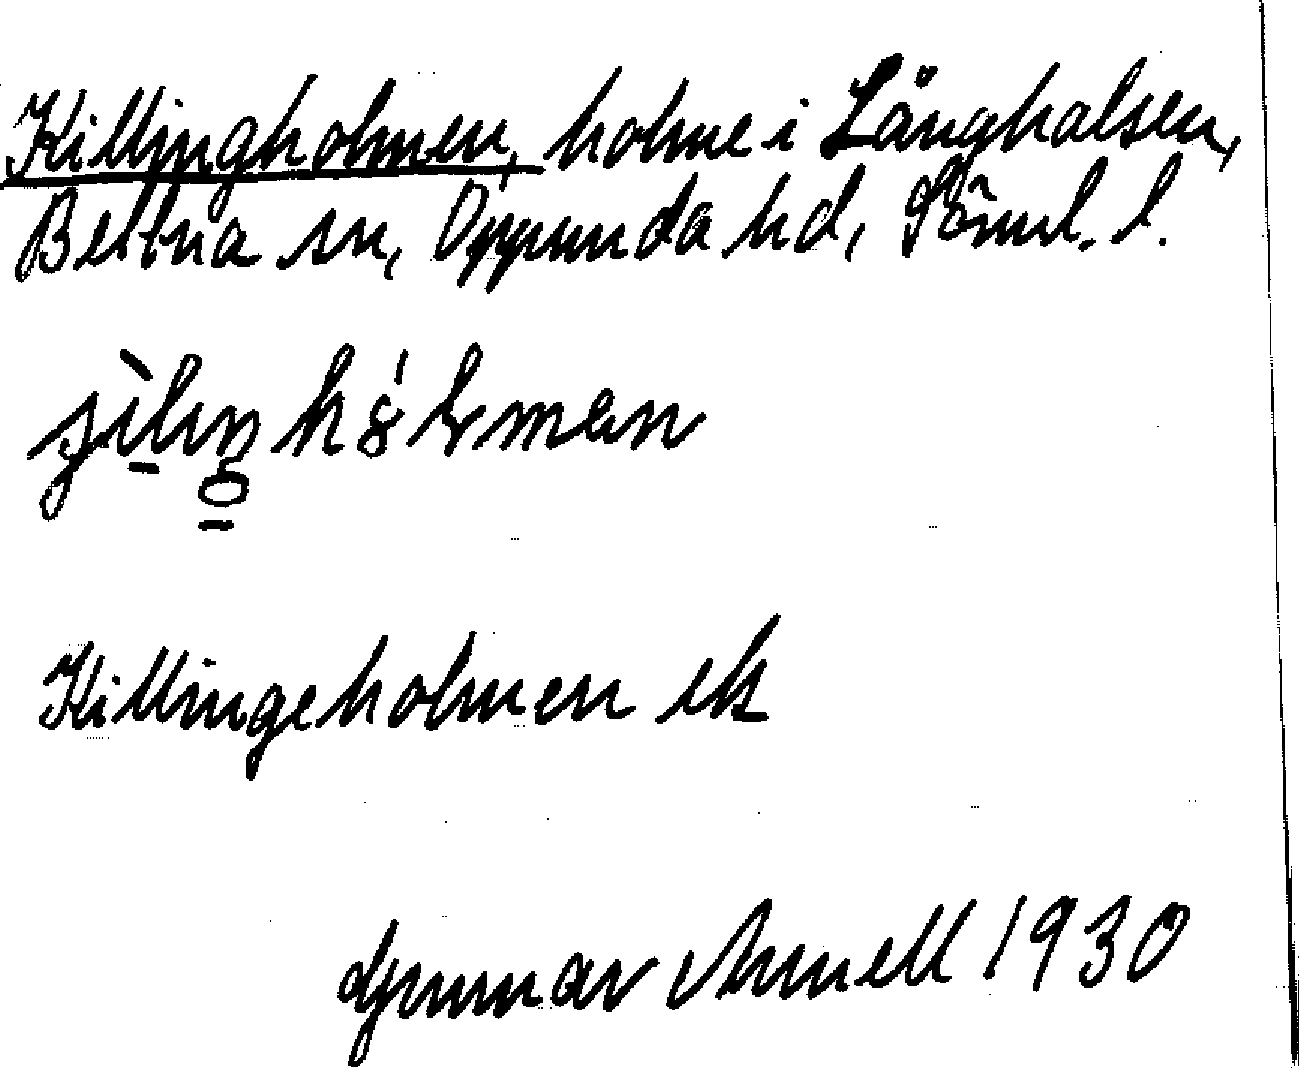 Killingholmen, holme i Långhalsen,
Bettna sn, Oppunda hd, Söml. l.
Killingeholmen ek
Gunnar Arnell 1930